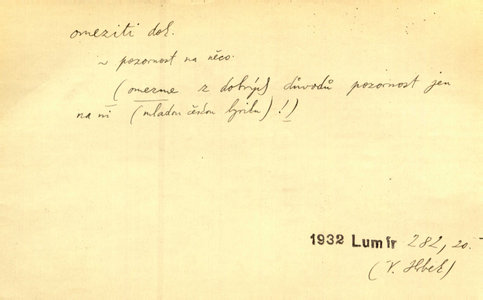 omeziti dok.
~ pozornost na něco.
(omezme z dobrých důvodů pozornost jen
na ni (mladou českou lyriku)!)
1932 Lumír 282, 20.
(V. Hbek)